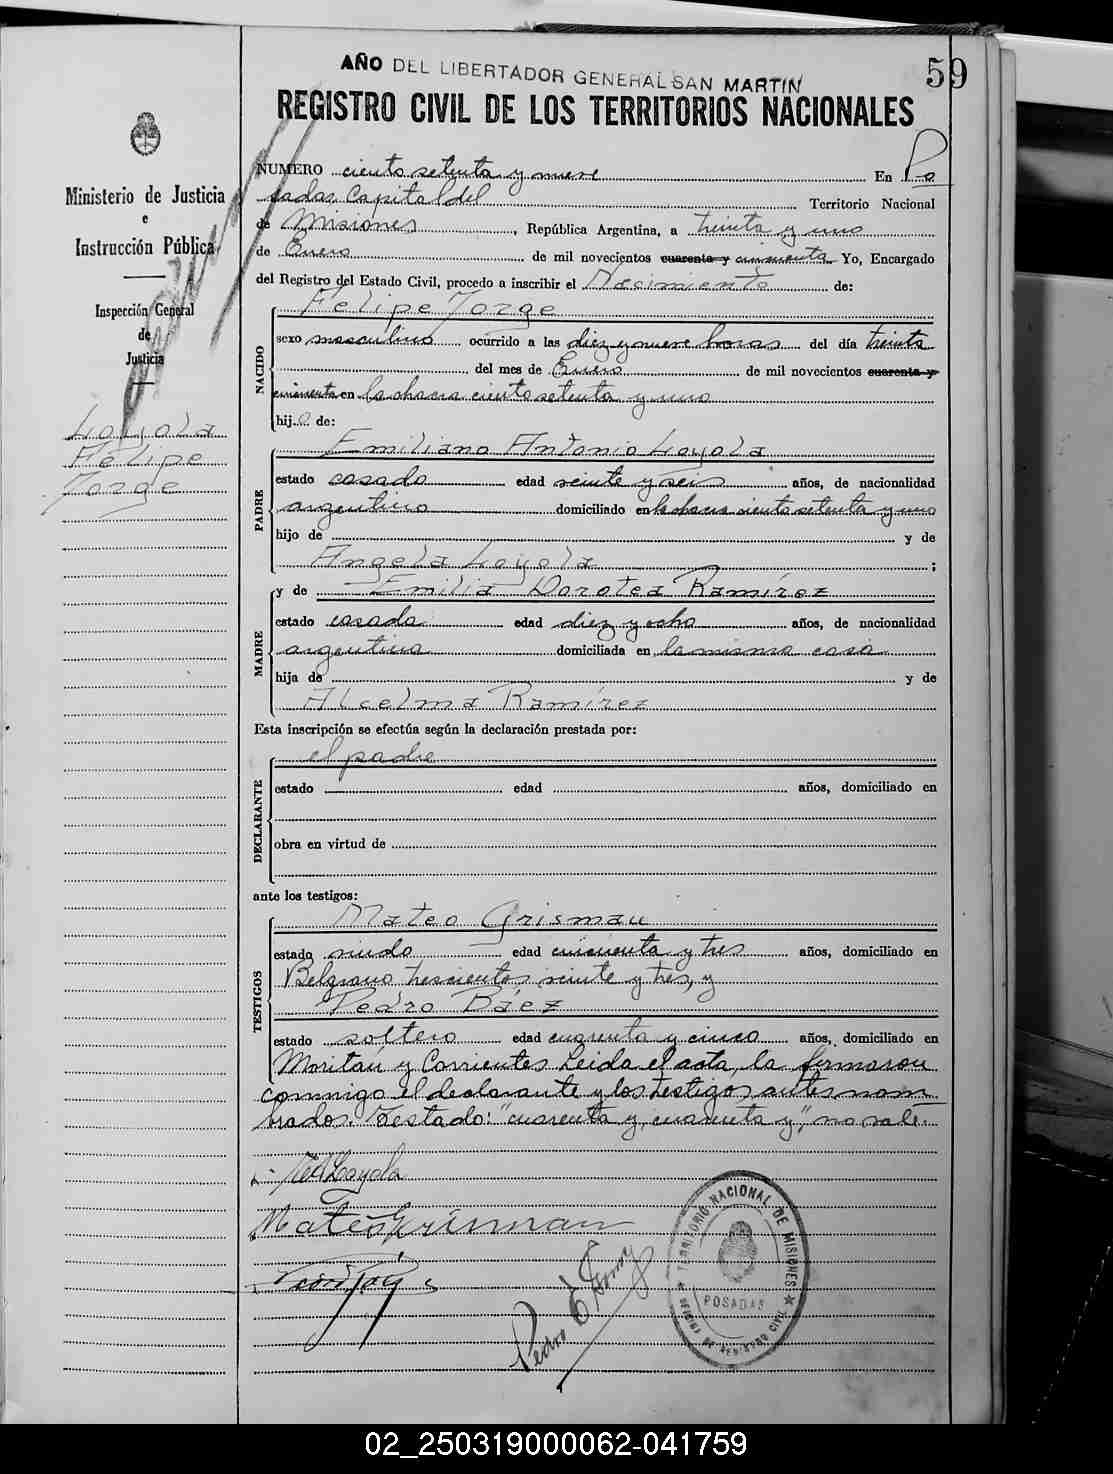 59
AÑO DEL LIBERTADOR GENERAL SAN MARTIN
REGISTRO CIVIL DE LOS TERRITORIOS NACIONALES
Ministerio de Justicia
e
Instrucción Pública
Inspección General
de
Justicia
Loyola
Felipe
Jorge
NUMERO ciento setenta y nueve En Po
sadas Capital del Territorio Nacional
de Misiones, República Argentina, a treinta y uno
de Enero de mil novecientos cuarenta y cincuenta Yo, Encargado
del Registro del Estado Civil, procedo a inscribir el Nacimiento de:
NACIDO
Felipe Jorge
sexo masculino ocurrido a las diez y nueve horas del día treinta
del mes de Enero de mil novecientos cuarenta y
cincuenta en la chacra ciento setenta y uno
hijo de:
PADRE
Emiliano Antonio Loyola
estado casado edad veinte y seis años, de nacionalidad
argentino domiciliado en la chacra ciento setenta y uno
hijo de y de
Angela Loyola ;
MADRE
y de Emilia Dorotea Ramírez
estado casada edad diez y ocho años, de nacionalidad
argentina domiciliada en la misma casa
hija de y de
Alcelma Ramírez
Esta inscripción se efectúa según la declaración prestada por:
DECLARANTE
el padre
estado edad años, domiciliado en
obra en virtud de
ante los testigos:
TESTIGOS
Mateo Grisman
estado viudo edad cincuenta y tres años, domiciliado en
Belgrano trescientos veinte y tres, y
Pedro Báez
estado soltero edad cuarenta y cinco años, domiciliado en
Moritán y Corrientes Leida el acta, la firmaron
conmigo el declarante y los testigos antes nom
brados. Testado: "cuarenta y, cuarenta y", no vale.
Loyola
Mateo Grisman
Pedro E
TERRITORIO NACIONAL DE MISIONES
POSADAS
OFICINA DE REGISTRO CIVIL
02_250319000062-041759